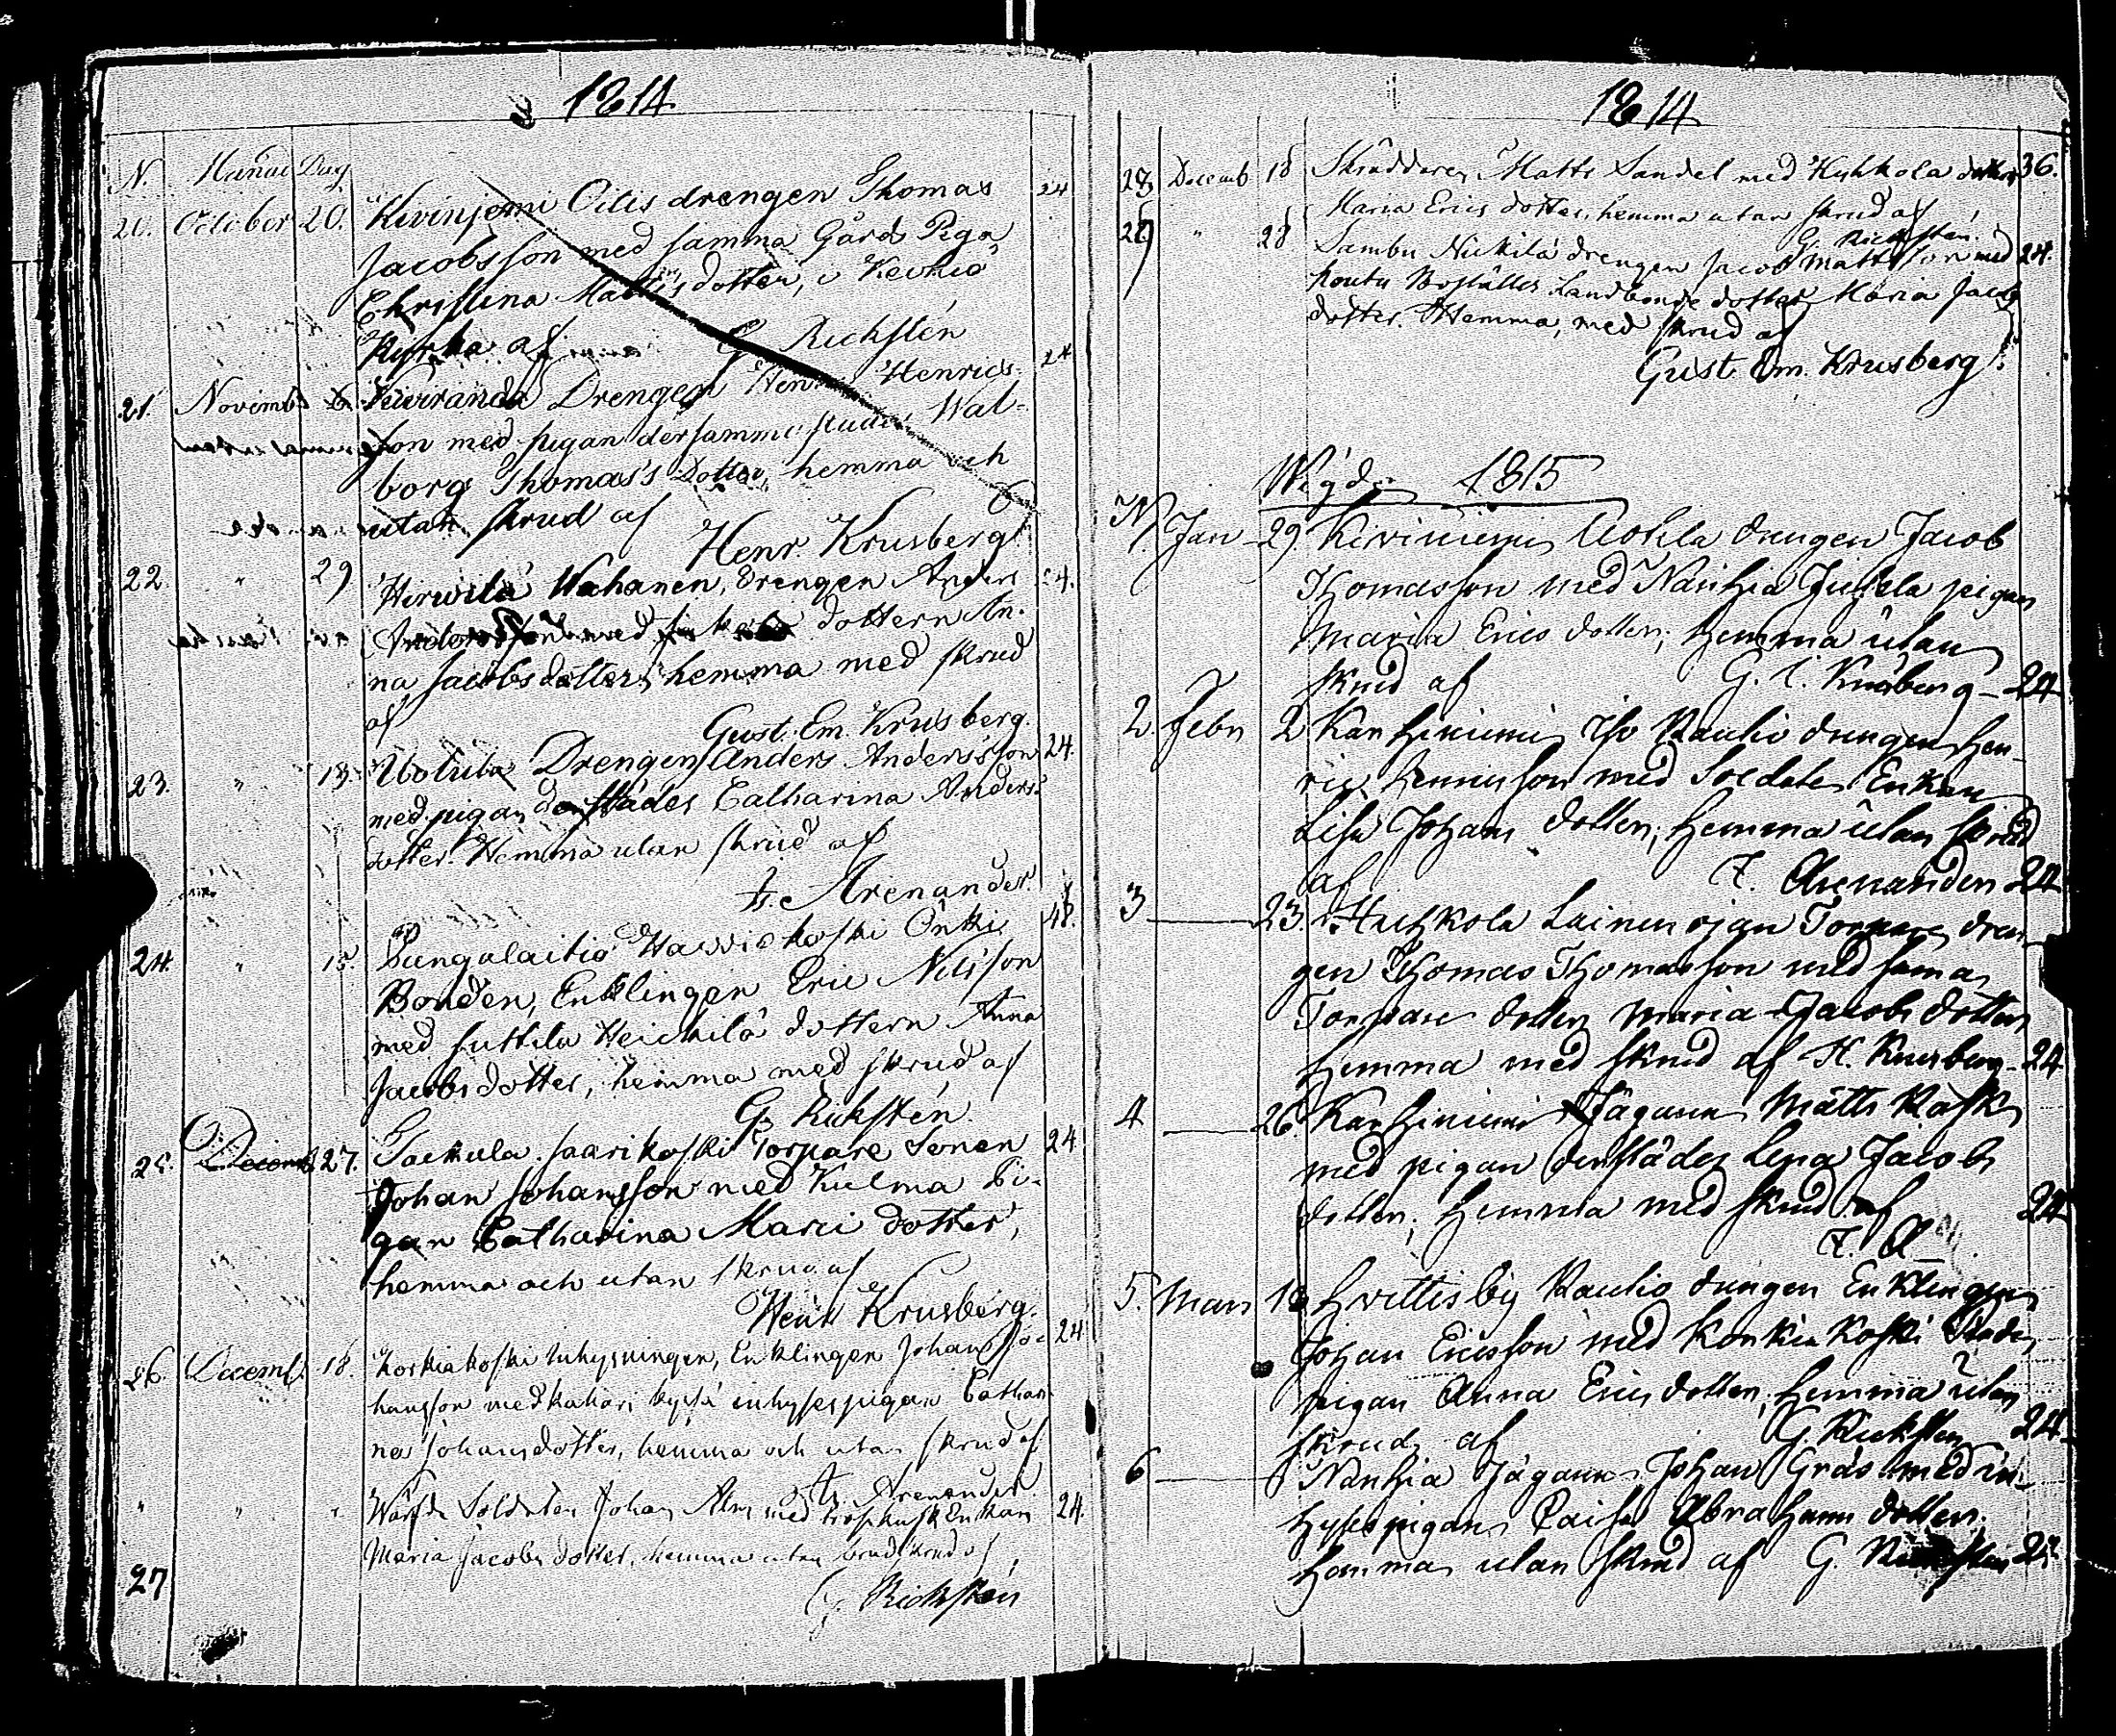 1814
N. Månad Dag
20. October 20. Kivinjemi Cilis drengen Thomas 24
Jacobsson med samma Gård Piga
Christina Matts dotter, i Keuhio
Kyrka af G. Richstén
21. Novemb 6. Drengen Henr. Henrics- 24
son med pigan dersamma städes Wal-
borg Thomas's Dotter, hemma och
utan skrud af
Henr. Krusberg
22. " 29 Hirvilä Wahanen, drengen Anders 24.
Andersson med dottern An-
na Jacobs dotter, hemma med skrud
af Gust. Em. Krusberg.
23. " 13. Uotula Drengen Anders Andersson 24.
med pigan derstädes Catharina Anders
dotter. Hemma utan skrud af
Fr. Arenander
24. " 15. Pungalaitio Haviokoski Önkis 48.
Bonden, Enklingen Eric Nilsson
med Suttila Heickilä dottern Anna
Jacobs dotter, hemma med skrud af
G. Rickstén
25. Decemb 27. Sackula Saarikoski Torpare Sonen 24
Johan Johansson med Kulma Pi-
gan Catharina Marci dotter,
hemma och utan skrud af
Henr. Krusberg.
26. Decemb. 18. Koskiakoski Inhysningen, Enklingen Johan Jo- 24
hansson med inhysespigan Cathari-
na Johansdotter, hemma och utan skrud af
Fr. Arenander
" " " Soldaten Johan Alm med Enkan 24.
Maria Jacobs dotter, hemma utan brudskrud af
27 G. Rickstén
1814
28 Decemb 18 Skräddaren Matts Sandel med Huhkola dotter 36.
Maria Erics dotter, hemma utan skrud af
G. Rickstén.
29 " 28 Sambu Nickilä drengen Jacob Mattsson med 24.
Boställes Landbonde dotter Maria Jacobs
dotter. Hemma, med skrud af
Gust. Em. Krusberg.
Wigde 1815
N
1. Jan 29. Kiviniemi Uotila drengen Jacob
Thomasson med Nanhia Jussila pigan
Maria Erics dotter; hemma utan
skrud af G. E. Krusberg - 24
2. Febr 2 Karhiniemi Iso Raulio drengen Hen-
ric Henricsson med Soldate Enkan
Lisa Johans dotter; hemma utan skrud
af F. Arenander 24
3 — 23. Huhkola Lainenojan Torpare dren-
gen Thomas Thomasson med sama
Torpare dotter Maria Jacobs dotter
hemma med skrud af H. Krusberg - 24
4 — 26. Karhiniemi Jägaren Matts Rask
med pigan derstädes Lena Jacobs
dotter; hemma med skrud af 24
F. A
5. Mars 18 Hvittisby Raulio drengen Enklingen
Johan Ericsson med Korkiakoski
pigan Anna Erics dotter, hemma utan
skrud af G. Rickstén 24
6 — Nanhia Jägaren Johan Gräs med in-
hyses pigan Caisa Abrahams dotter.
hemma utan skrud af G. Rickstén 24